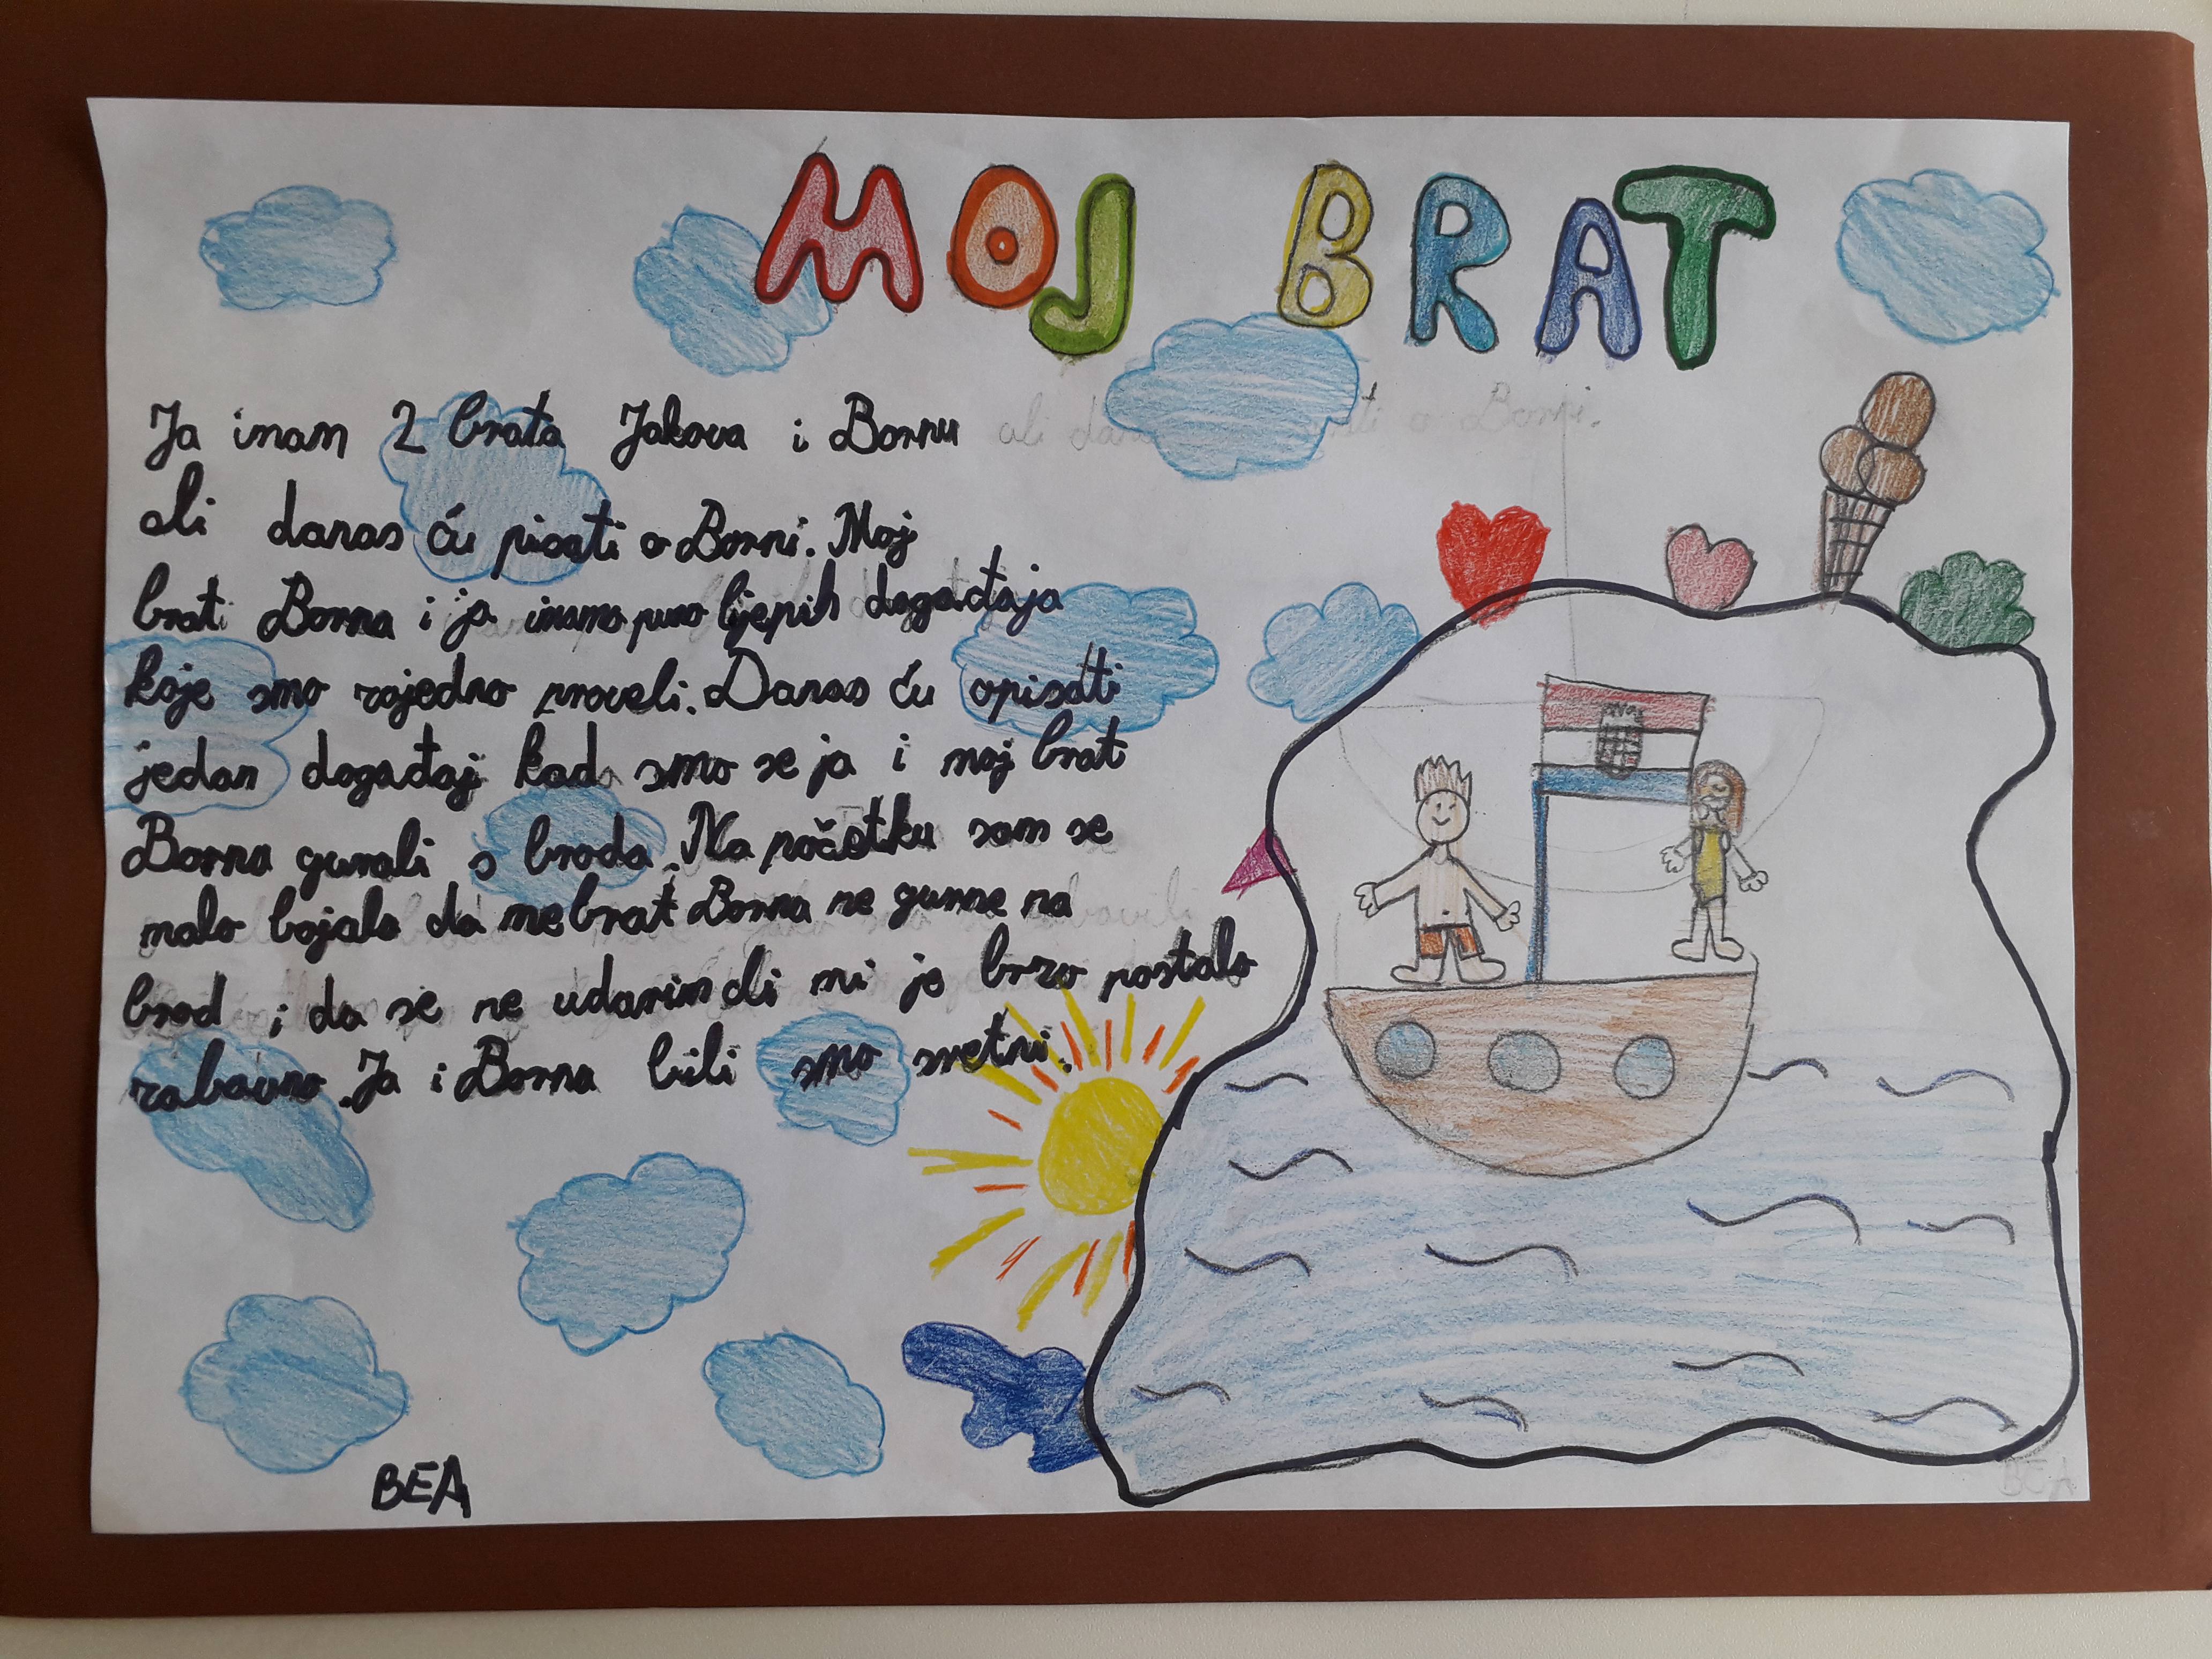 MOJ BRAT
Ja imam 2 brata Jakova i Bornu
ali danas ću pisati o Borni. Moj
brat Borna i ja imamo puno lijepih događaja
koje smo zajedno proveli. Danas ću opisati
jedan događaj kad smo se ja i moj brat
Borna gurali s broda. Na početku sam se
malo bojala da me brat Borna ne gurne na
brod i da se ne udarim ali mi je brzo postalo
zabavno. Ja i Borna bili smo sretni.
BEA
BEA